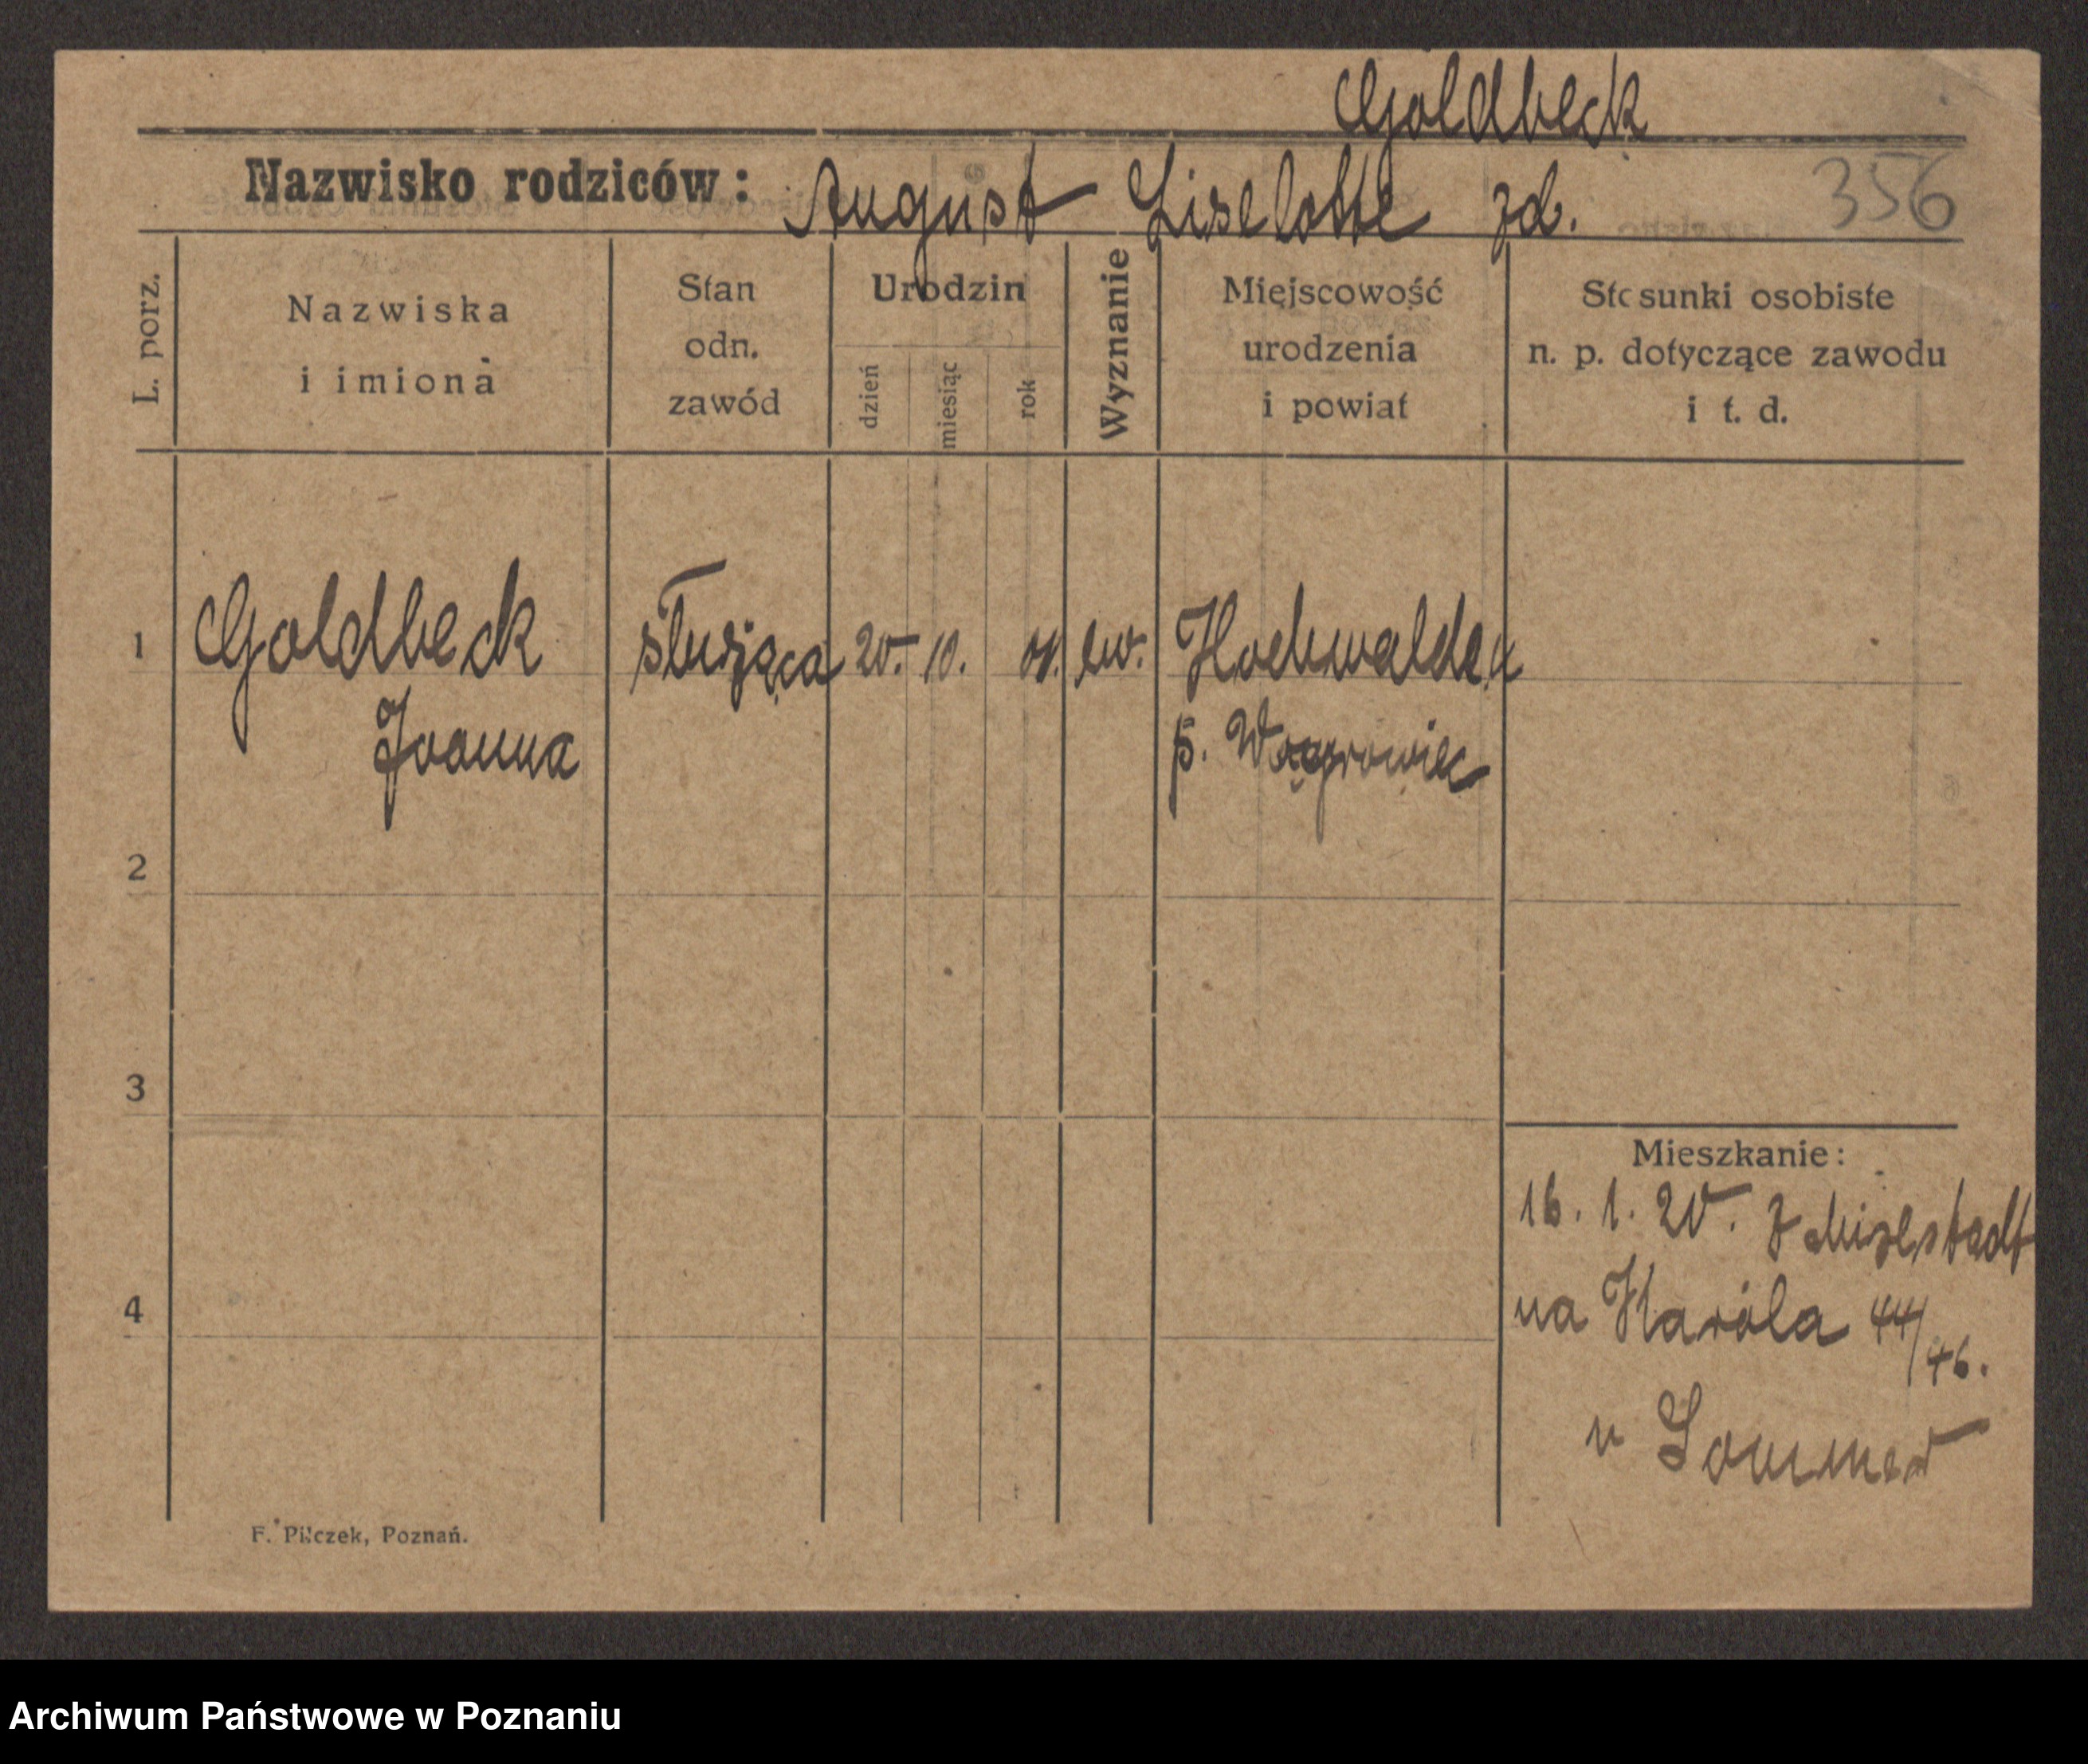 Goldbeck
Nazwisko rodziców: August Liselotte zd. 356
L. porz.
Nazwiska
i imiona
Stan
odn.
zawód
Urodzin
dzień
miesiąc
rok
Wyznanie
Miejscowość
urodzenia
i powiat
Stosunki osobiste
n. p. dotyczące zawodu
i t. d.
1 Goldbeck służąca 20. 10. 01. ew. Hochwalden
Joanna p. Wągrowiec
2
3
4
Mieszkanie:
16. 1. 20. z
na Karola 44/46.
u Sommer
F. Pilczek, Poznań.
Archiwum Państwowe w Poznaniu